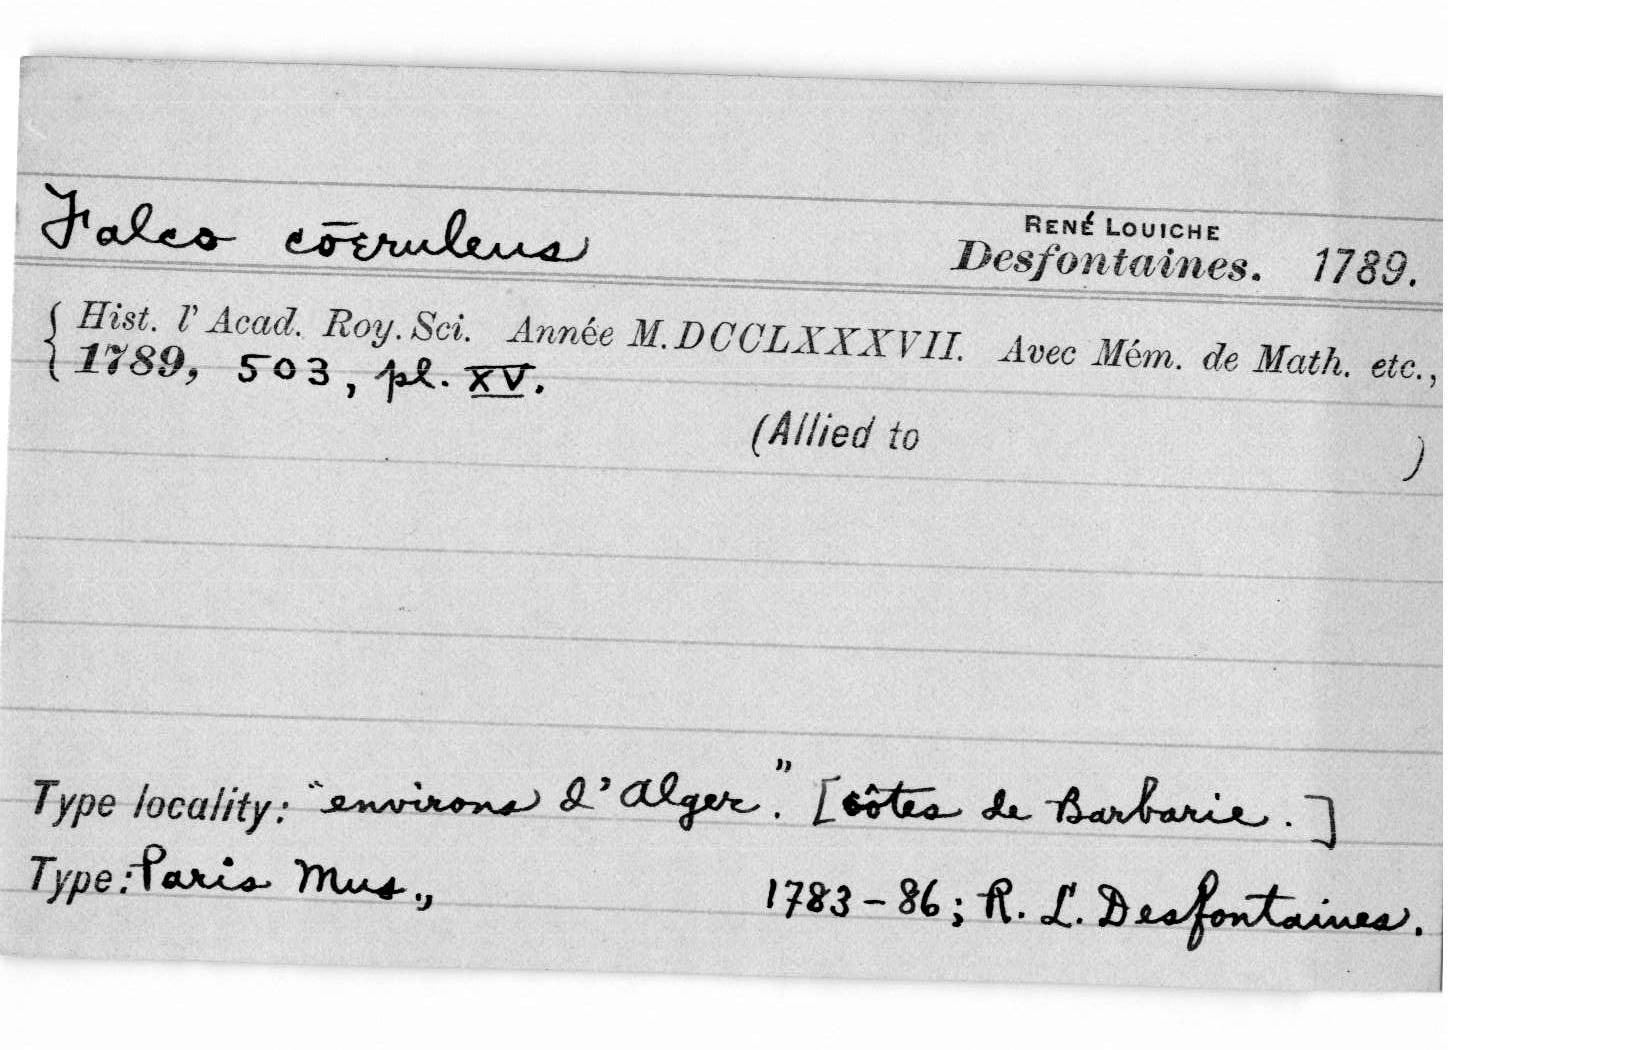 Falco cōeruleus
RENÉ LOUICHE
Desfontaines. 1789.
Hist. l'Acad. Roy. Sci. Année M.DCCLXXXVII. Avec Mém. de Math. etc.,
1789, 503, pl. XV.
(Allied to )
Type locality: "environs d'Alger." [côtes de Barbarie.]
Type: Paris Mus., 1783-86; R. L. Desfontaines.